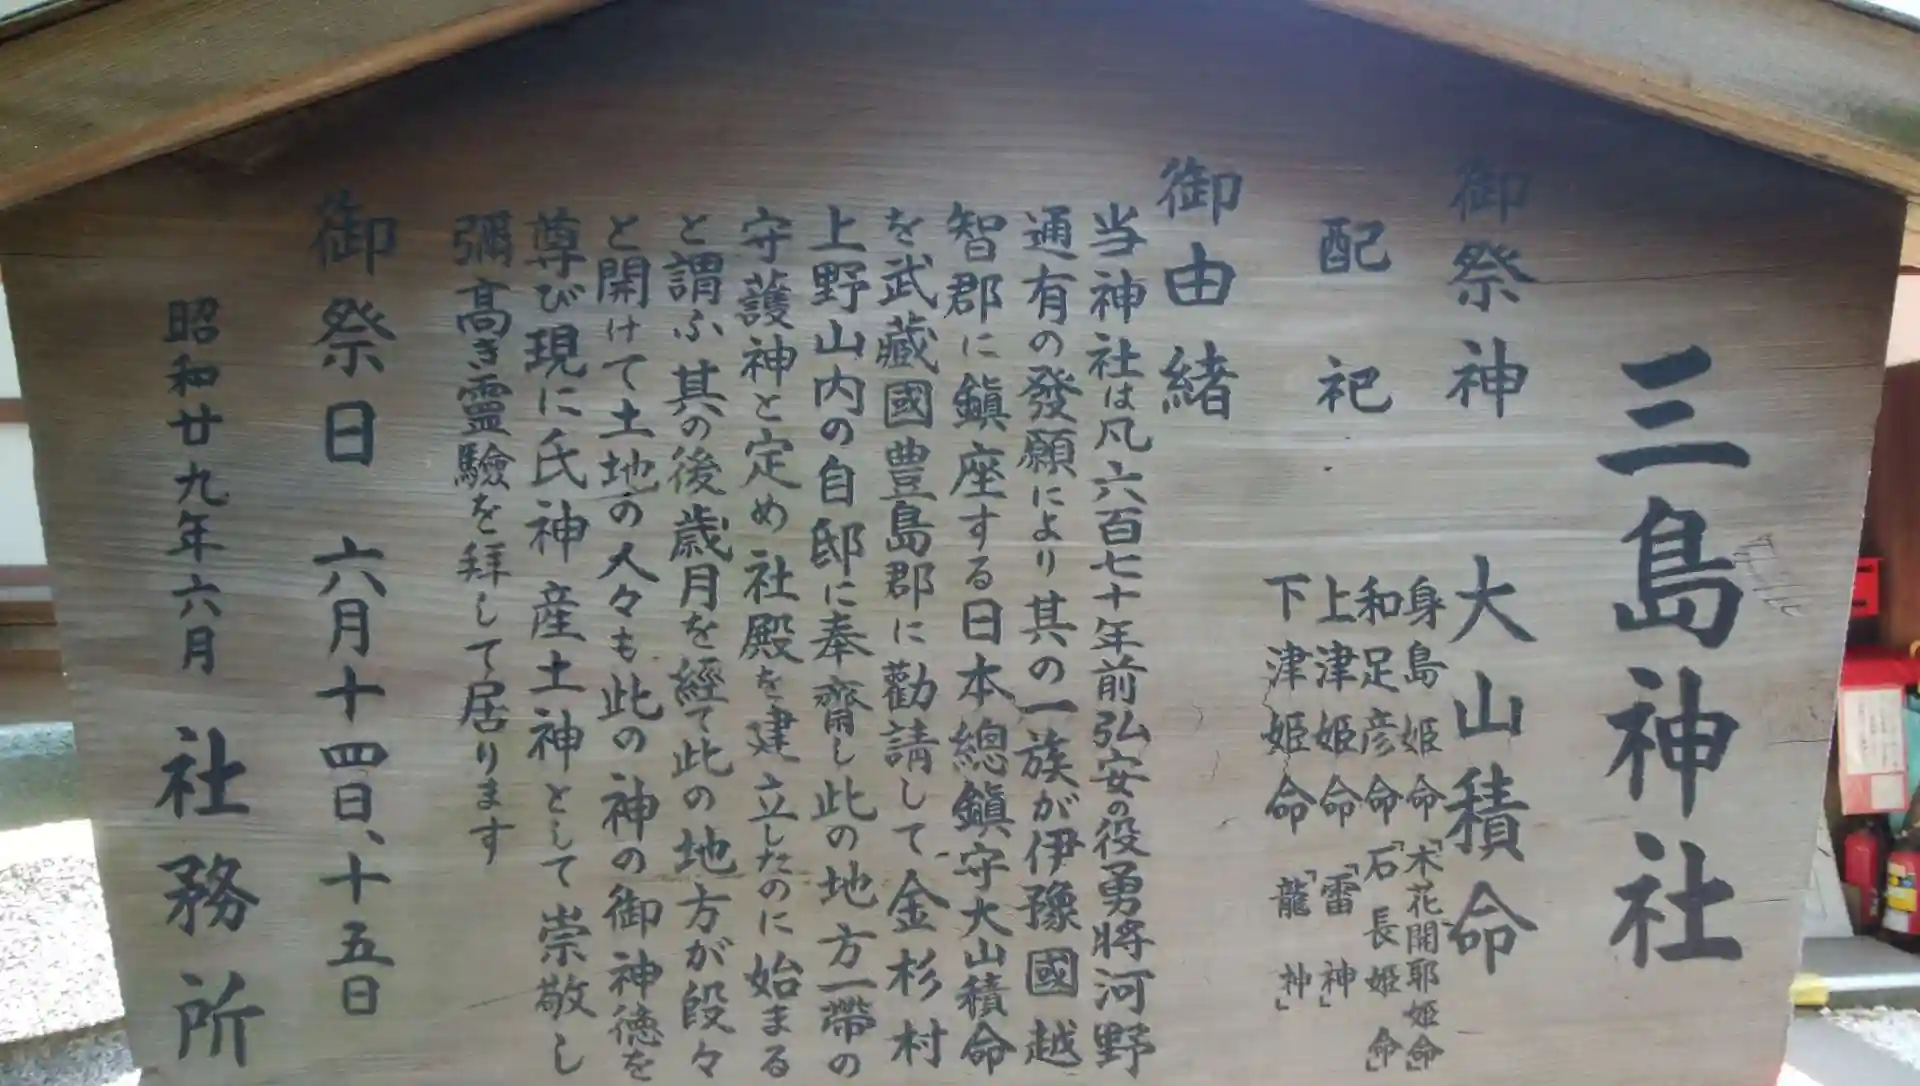 三島神社
御祭神　大山積命
配祀　身島姫命「木花開耶姫命」
和足彦命「石長姫命」
上津姫命「雷神」
下津姫命「龍神」
御由緒
当神社は凡六百七十年前弘安の役勇將河野
通有の發願により其の一族が伊豫國越
智郡に鎭座する日本總鎭守大山積命
を武藏國豊島郡に勸請して金杉村
上野山内の自邸に奉齋し此の地方一帶の
守護神と定め社殿を建立したのに始まる
と謂ふ其の後歳月を經て此の地方が段々
と開けて土地の人々も此の神の御神徳を
尊び現に氏神産土神として崇敬し
彌高き霊驗を拜して居ります
御祭日　六月十四日、十五日
昭和廿九年六月　社務所